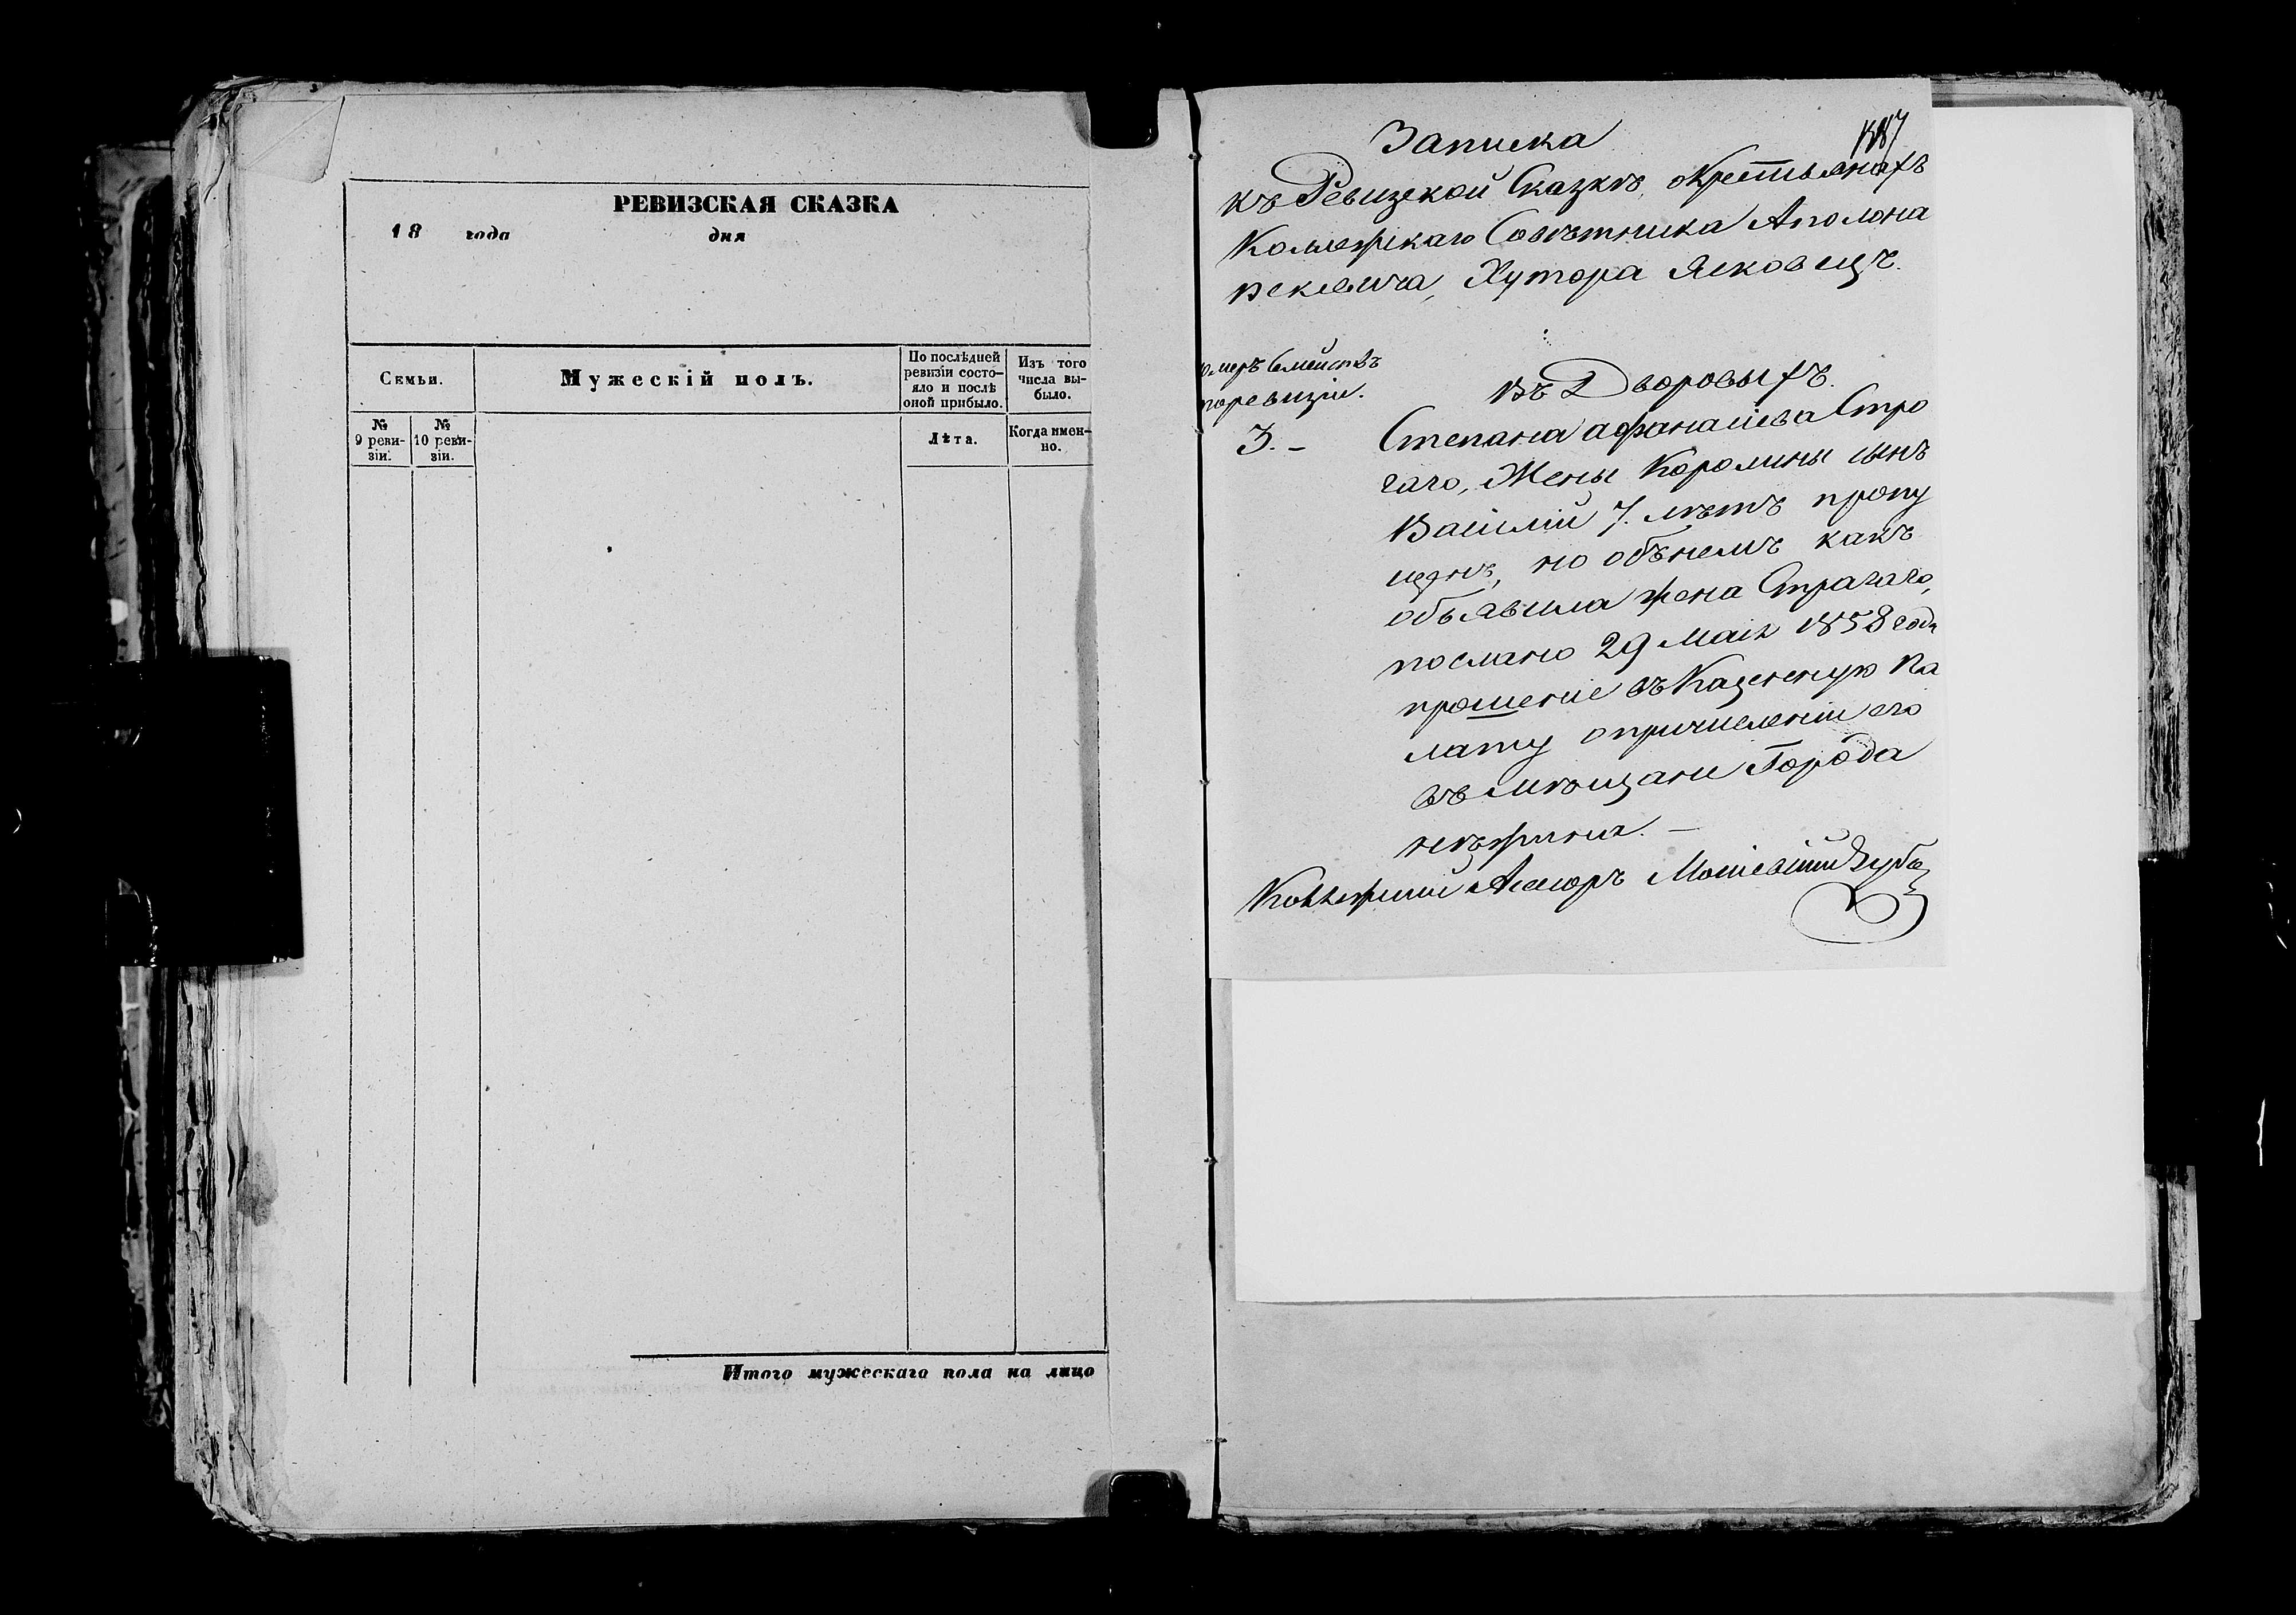 РЕВИЗСКАЯ СКАЗКА
18 года дня
Семьи.
Мужескій полъ.
По послѣдней
ревизіи состо-
яло и послѣ
оной прибыло.
Изъ того
числа вы-
было.
№
9 реви-
зіи.
№
10 реви-
зіи.
Лѣта.
Когда имен-
но.
Итого мужескаго пола на лицо
Записка
къ Ревизской Сказкѣ, окрестьянахъ
Коллежскаго Совѣтника Аполона
Хутора
омеръ Семействъ
поревизіи.
Въ Дворовыхъ.
3. -
Степана афанасіева Стро
гаго, Жены Королины сынъ
Василій 7. лѣтъ пропу
щенъ, но объ немъ какъ
объявила жена Страгаго,
послано 29 Маія 1858 года
прошеніе въ Казенную Па
лату опричисленіи его
въ мѣщани Города
нѣжина. -
Коллежскій Асесоръ